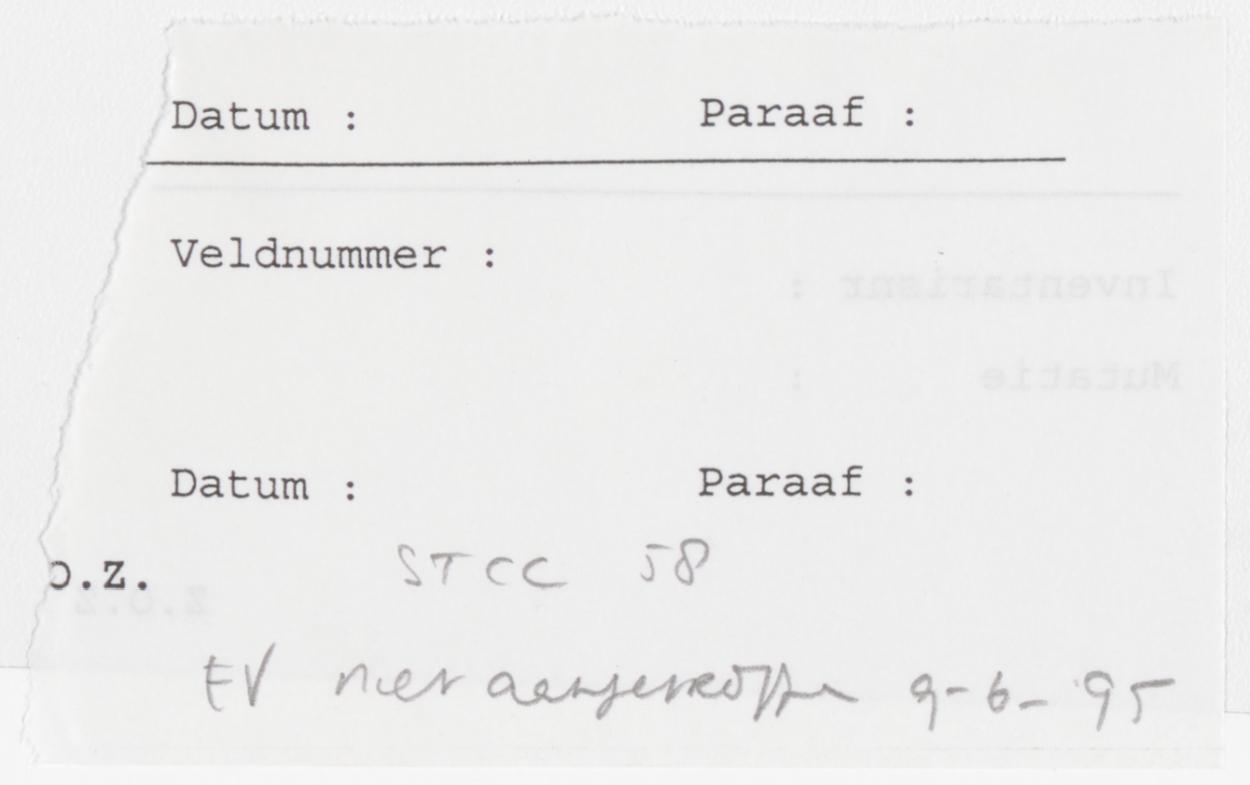 Datum : Paraaf :
Veldnummer :
Inventarisnr :
Mutatie :
Datum : Paraaf :
o.z. STCC 58
z.o.z
EV niet aangetroffen 9-6-'95